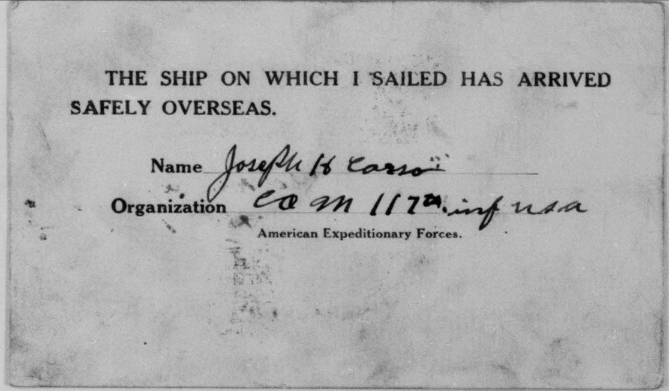 THE SHIP ON WHICH I SAILED HAS ARRIVED
SAFELY OVERSEAS.
Name Joseph H Carson
Organization Co M 117th inf usa
American Expeditionary Forces.